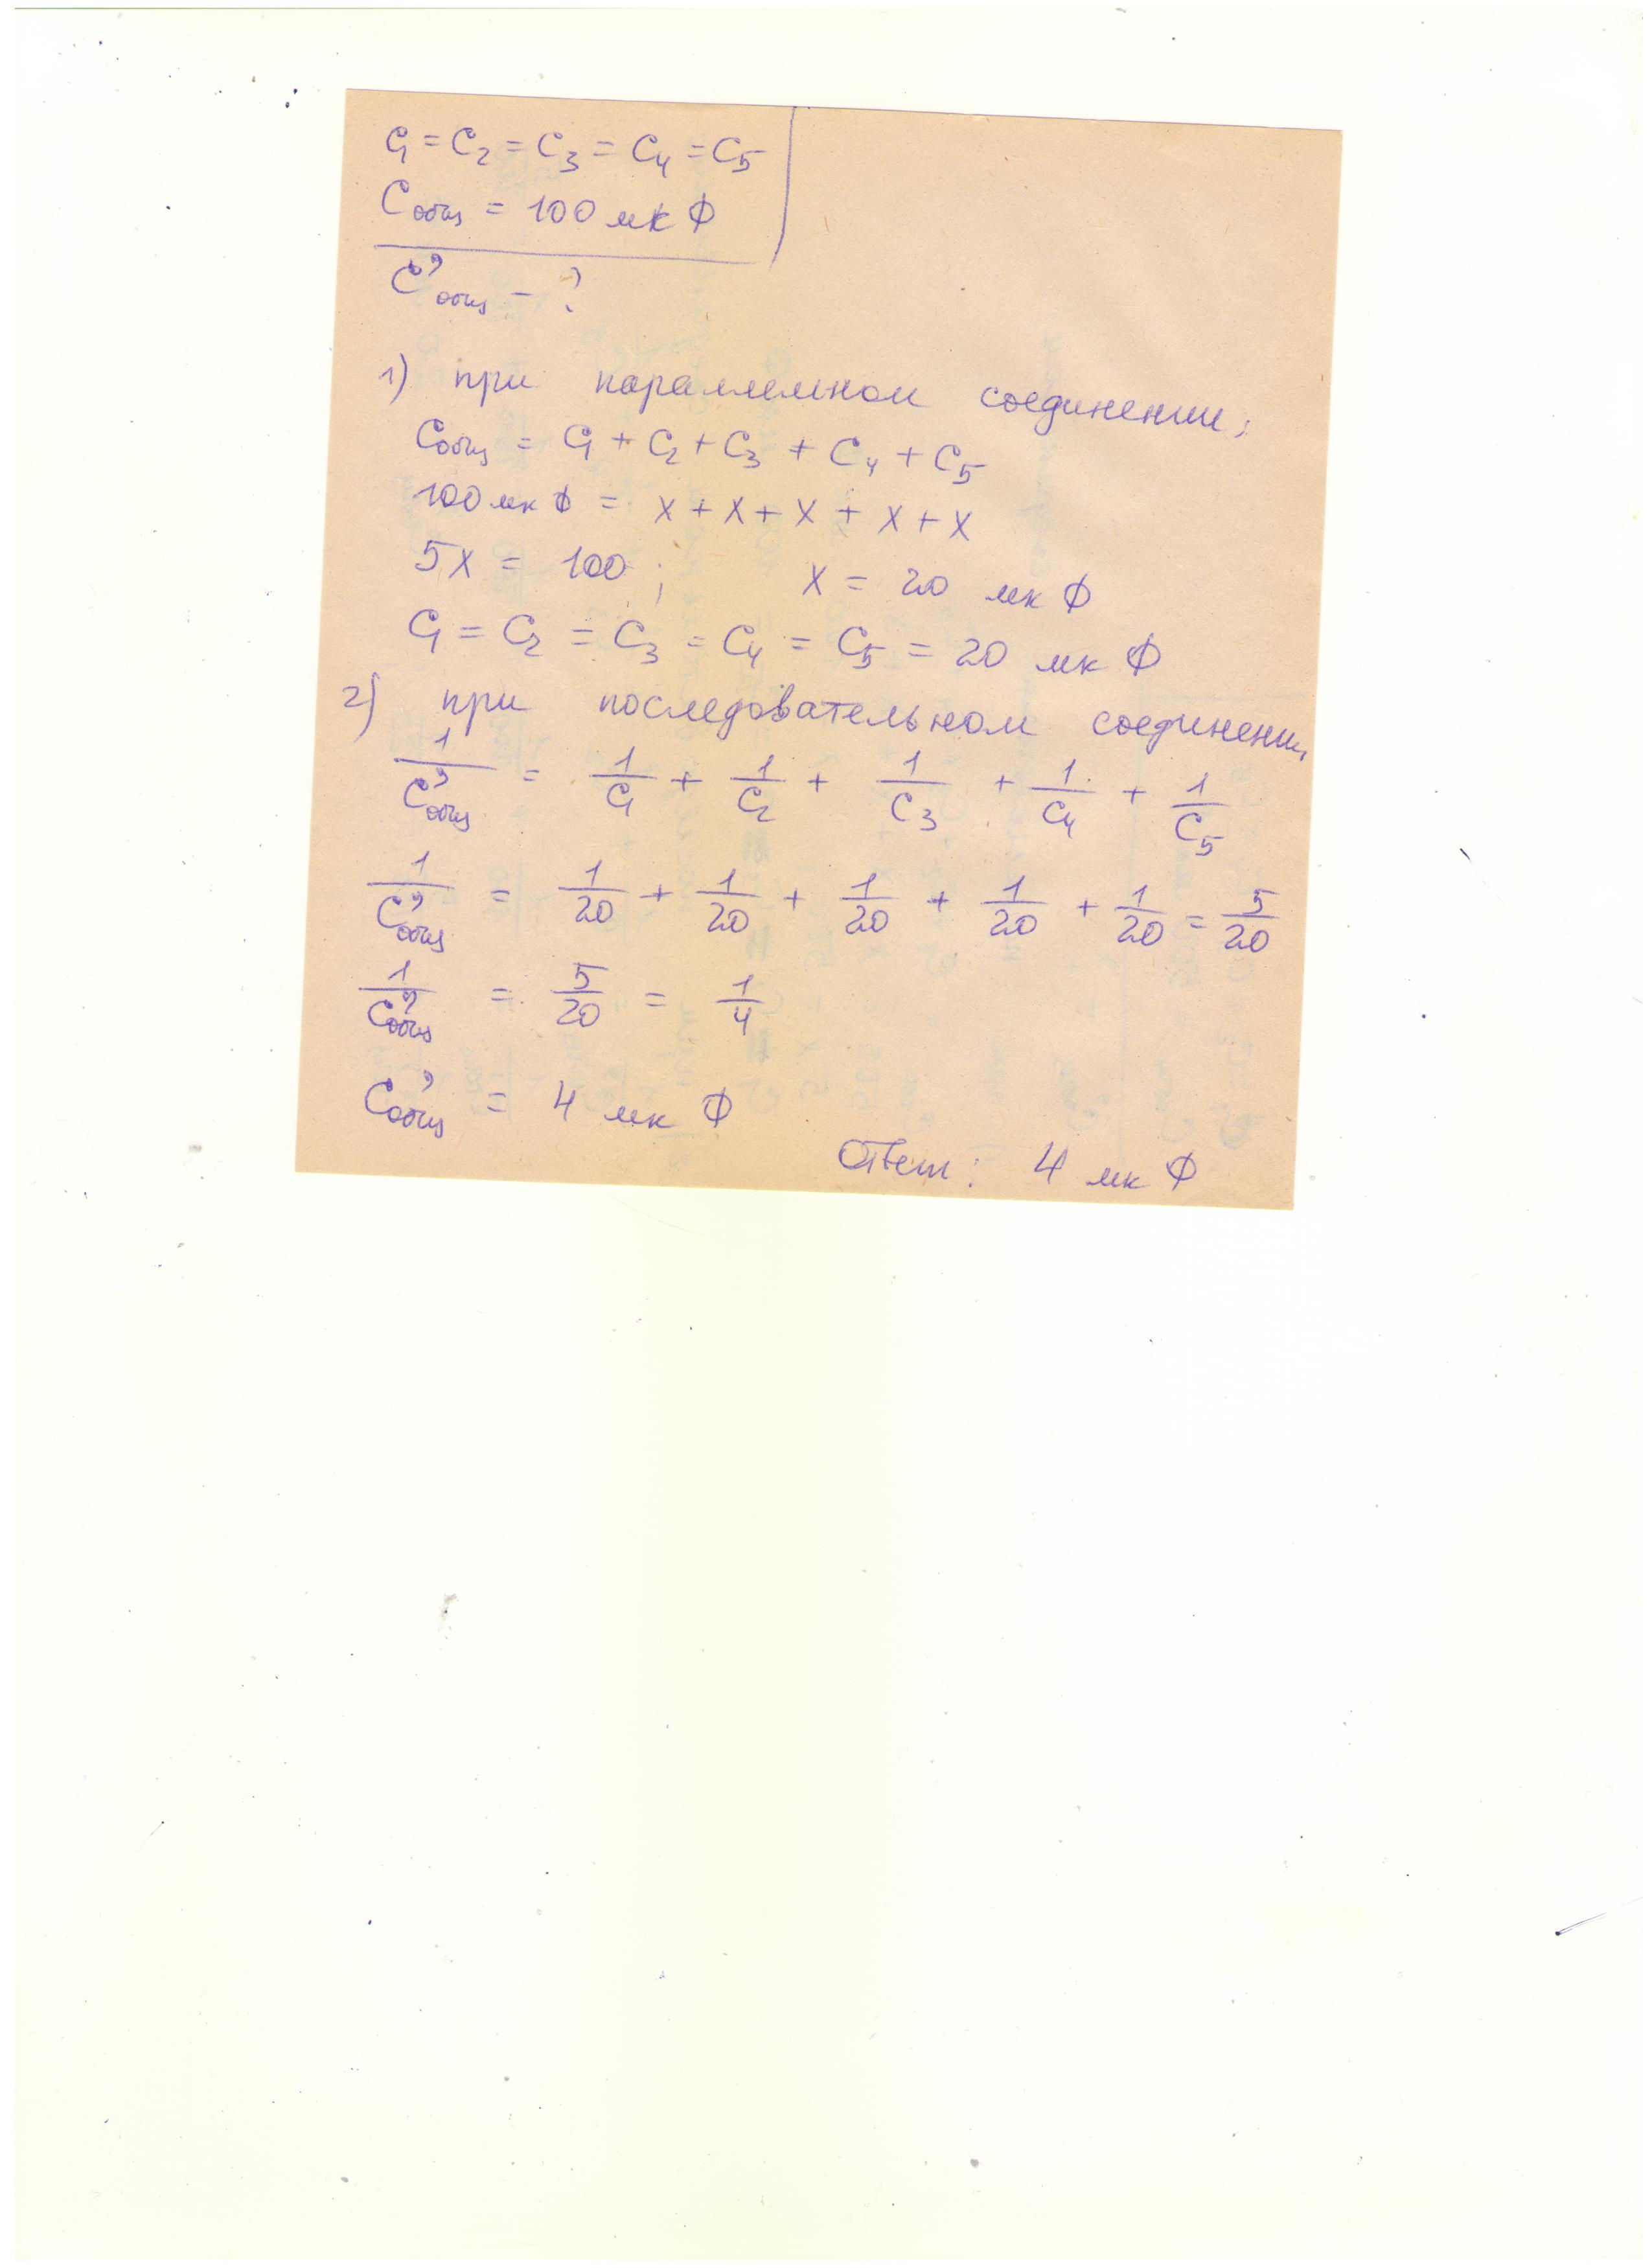 C₁ = C₂ = C₃ = C₄ = C₅
Cобщ = 100 мк Ф
C'общ - ?
1) при параллельном соединении;
Cобщ = C₁ + C₂ + C₃ + C₄ + C₅
100 мк Ф = x + x + x + x + x
5x = 100 ; x = 20 мк Ф
C₁ = C₂ = C₃ = C₄ = C₅ = 20 мк Ф
2) при последовательном соединении
1/C'общ = 1/C₁ + 1/C₂ + 1/C₃ + 1/C₄ + 1/C₅
1/C'общ = 1/20 + 1/20 + 1/20 + 1/20 + 1/20 = 5/20
1/C'общ = 5/20 = 1/4
C'общ = 4 мк Ф
Ответ: 4 мк Ф